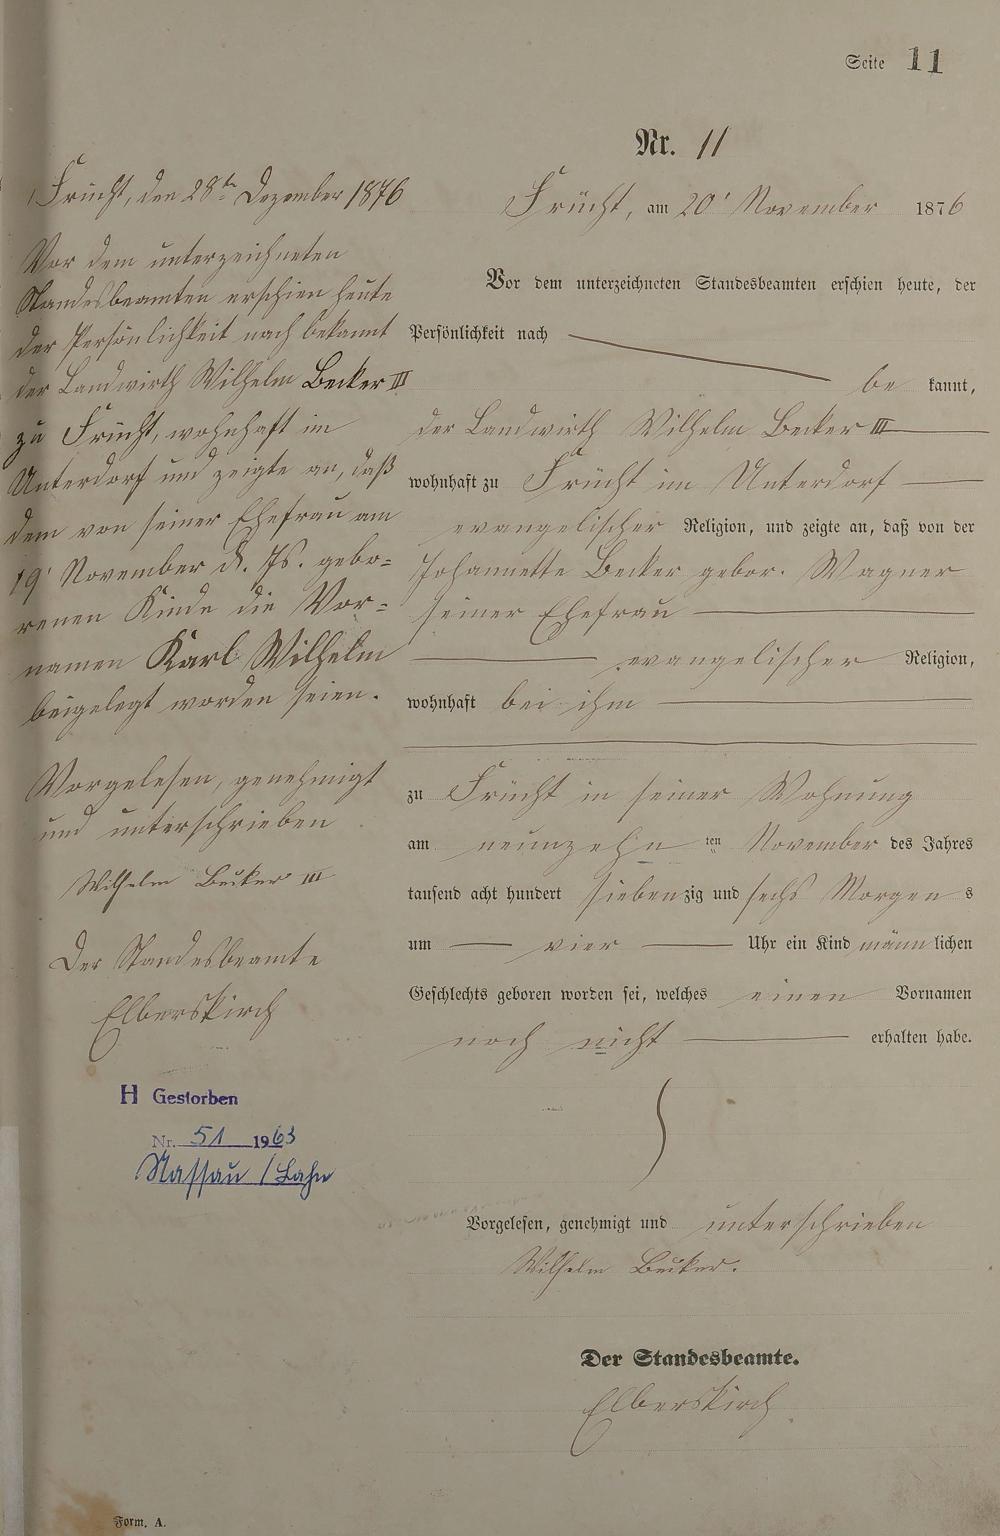 Seite 11
Nr. 11
Frücht, am 20' November 1876
Vor dem unterzeichneten Standesbeamten erschien heute, der
Persönlichkeit nach
be kannt,
der Landwirth Wilhelm Becker III
wohnhaft zu Frücht im Unterdorf
evangelischer Religion, und zeigte an, daß von der
Johannette Becker gebor. Wagner
seiner Ehefrau
evangelischer Religion,
wohnhaft bei ihm
zu Frücht in seiner Wohnung
am neunzehn ten November des Jahres
tausend acht hundert siebenzig und sechs Morgen s
um vier Uhr ein Kind männ lichen
Geschlechts geboren worden sei, welches einen Vornamen
noch nicht erhalten habe.
Vorgelesen, genehmigt und unterschrieben
Wilhelm Becker.
Der Standesbeamte.
Elberskirch
Frücht, den 28ten Dezember 1876
Vor dem unterzeichneten
Standesbeamten erschien heute
der Persönlichkeit nach bekannt
der Landwirth Wilhelm Becker III
zu Frücht, wohnhaft im
Unterdorf und zeigte an, daß
dem von seiner Ehefrau am
19' November d. Js. gebo=
renen Kinde die Vor=
namen Karl Wilhelm
beigelegt worden seien.
Vorgelesen, genehmigt
und unterschrieben
Wilhelm Becker III
Der Standesbeamte
Elberskirch
H Gestorben
Nr. 51 1963
Nassau / Lahn
Form. A.